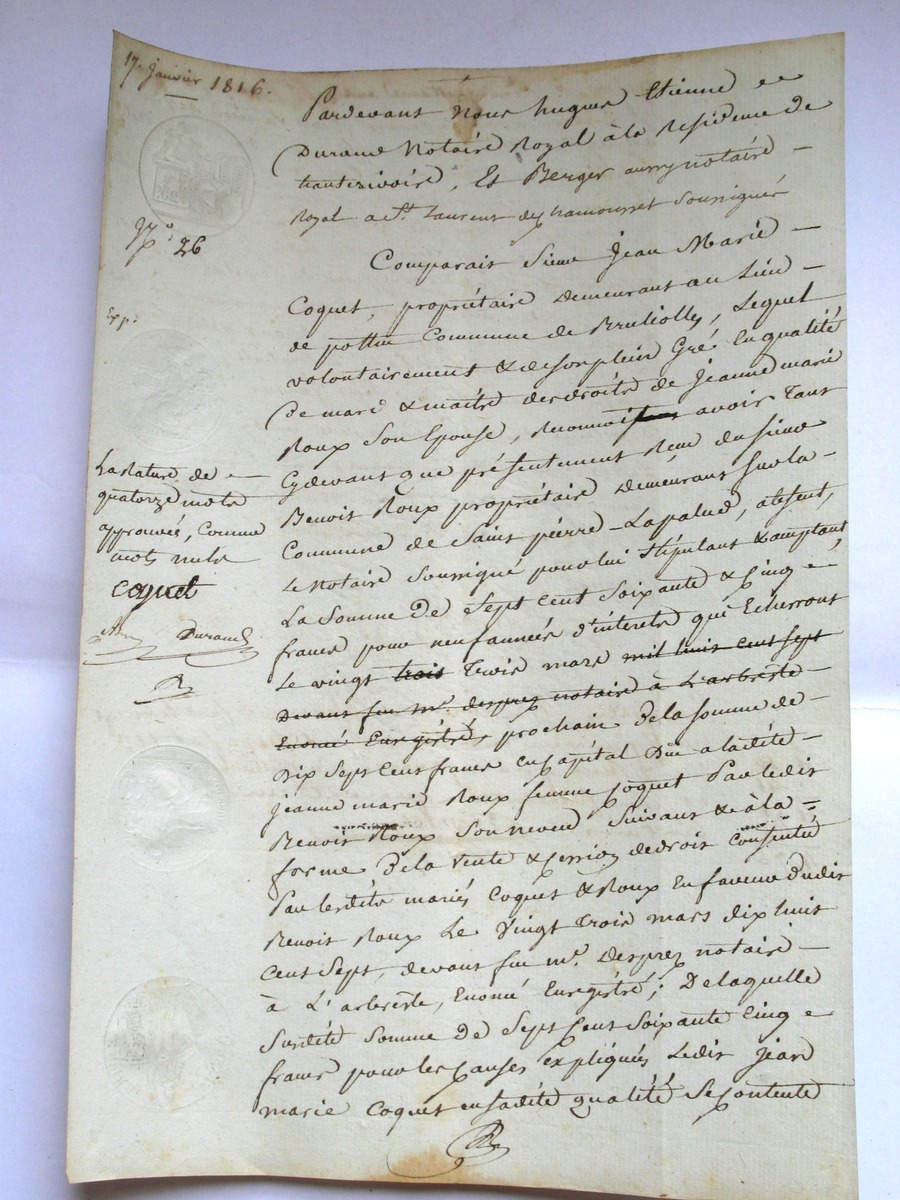 17 Janvier 1816.
Pardevant Nous hugues Etienne
Durand Notaire Royal à la Residence de
hauterivoire, Et Berger aussy notaire
Royal a St. Laurent de chamousset soussignés
N° 26
Comparait Sieur Jean Marie
Exp.
Coquet, propriétaire Demeurant au Lieu
de pottin Commune de Brulliolles, Lequel
volontairement & de son plein Gré En qualité
De mari & maitre des droits de Jeanne marie
Roux Son Epouse, Reconnoit avoir Tant
Cydevant que présentement Reçu du sieur
Benoit Roux propriétaire Demeurant sur la
Commune de Saint pierre-Lapalud, absent,
Le Notaire Soussigné pour lui Stipulant & acceptant,
La Somme de Sept Cent Soixante & Cinq
francs pour neuf années d'interets qui Echerront
Le vingt trois Trois mars mil huit cent sept
Devant feu me. desprez notaire à L'arbresle
Enoncé Enregistré, prochain De la somme de
Dix Sept Cent francs en Capital Due a ladite
Jeanne marie Roux femme Coquet Par ledit
Benoit Roux Son neveu Suivant & à la
forme De la vente & cession de droit Consentie
Par lesdits mariés Coquet & Roux En faveur dudit
Benoit Roux Le Vingt Trois mars dix huit
Cent Sept, devant feu me. Desprez notaire
à L'arbresle, Enoncé Enregistré; De laquelle
Susdite Somme de Sept Cent Soixante Cinq
francs pour les Causes expliquées Ledit Jean
marie Coquet en sadite qualité Se Contente
La Rature de
quatorze mots
approuvée, comme
mots nuls
Coquet
Durand